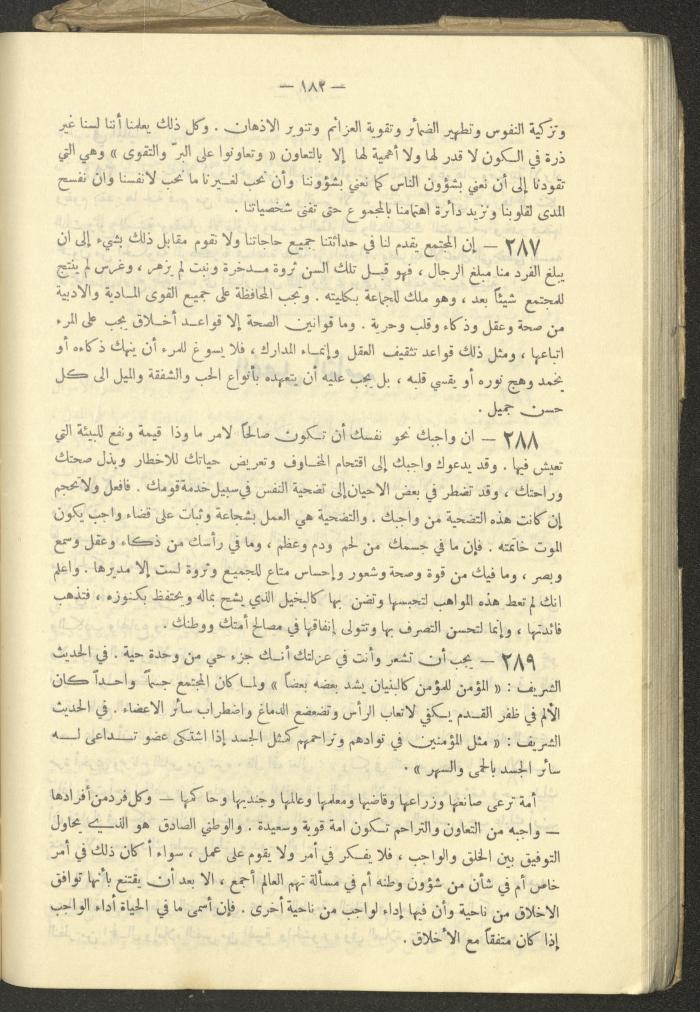 — ١٨٢ —
وتزكية النفوس وتطهير الضمائر وتقوية العزائم وتنوير الاذهان . وكل ذلك يعلمنا أننا لسنا غير
ذرة في الكون لا قدر لها ولا أهمية لها إلا بالتعاون « وتعاونوا على البرّ والتقوى » وهي التي
تقودنا إلى أن نعني بشؤون الناس كما نعني بشؤوننا وأن نحب لغيرنا ما نحب لانفسنا وان نفسح
المدى لقلوبنا ونزيد دائرة اهتمامنا بالمجموع حتى تفنى شخصياتنا .
٢٨٧ — إن المجتمع يقدم لنا في حداثتنا جميع حاجاتنا ولا نقوم مقابل ذلك بشيء إلى ان
يبلغ الفرد منا مبلغ الرجال ، فهو قبل تلك السن ثروة مدخرة ونبت لم يزهر ، وغرس لم ينتج
للمجتمع شيئاً بعد ، وهو ملك للجماعة بكليته . وتجب المحافظة على جميع القوى المادية والادبية
من صحة وعقل وذكاء وقلب وحرية . وما قوانين الصحة إلا قواعد أخلاق يجب على المرء
اتباعها ، ومثل ذلك قواعد تثقيف العقل وإنماء المدارك ، فلا يسوغ للمرء أن ينهك ذكاءه أو
يخمد وهج نوره أو يقسي قلبه ، بل يجب عليه أن يتعهده بأنواع الحب والشفقة والميل الى كل
حسن جميل .
٢٨٨ — ان واجبك نحو نفسك أن تكون صالحاً لامر ما وذا قيمة ونفع للبيئة التي
تعيش فيها . وقد يدعوك واجبك إلى اقتحام المخاوف وتعريض حياتك للاخطار وبذل صحتك
وراحتك ، وقد تضطر في بعض الاحيان إلى تضحية النفس في سبيل خدمة قومك . فافعل ولا تحجم
إن كانت هذه التضحية من واجبك . والتضحية هي العمل بشجاعة وثبات على قضاء واجب يكون
الموت خاتمته . فإن ما في جسمك من لحم ودم وعظم ، وما في رأسك من ذكاء وعقل وسمع
وبصر ، وما فيك من قوة وصحة وشعور وإحساس متاع للجميع وثروة لست إلا مديرها . واعلم
انك لم تعط هذه المواهب لتحبسها وتضن بها كالبخيل الذي يشح بماله ويحتفظ بكنوزه ، فتذهب
فائدتها ، وإنما لتحسن التصرف بها وتتولى إنفاقها في مصالح أمتك ووطنك .
٢٨٩ — يجب أن تشعر وأنت في عزلتك أنك جزء حي من وحدة حية . في الحديث
الشريف : « المؤمن للمؤمن كالبنيان يشد بعضه بعضاً » ولما كان المجتمع جسماً واحداً كان
الألم في ظفر القدم يكفي لاتعاب الرأس وتضعضع الدماغ واضطراب سائر الاعضاء . في الحديث
الشريف : « مثل المؤمنين في توادهم وتراحمهم كمثل الجسد إذا اشتكى عضو تداعى له
سائر الجسد بالحمى والسهر » .
أمة ترعى صانعها وزراعها وقاضيها ومعلمها وعالمها وجنديها وحاكمها — وكل فرد من أفرادها
— واجبه من التعاون والتراحم تكون امة قوية وسعيدة . والوطني الصادق هو الذي يحاول
التوفيق بين الخلق والواجب ، فلا يفكر في أمر ولا يقوم على عمل ، سواء أ كان ذلك في أمر
خاص أم في شأن من شؤون وطنه أم في مسألة تهم العالم أجمع ، الا بعد أن يقتنع بأنها توافق
الاخلاق من ناحية وأن فيها إداء لواجب من ناحية أخرى . فإن أسمى ما في الحياة أداء الواجب
إذا كان متفقاً مع الأخلاق .